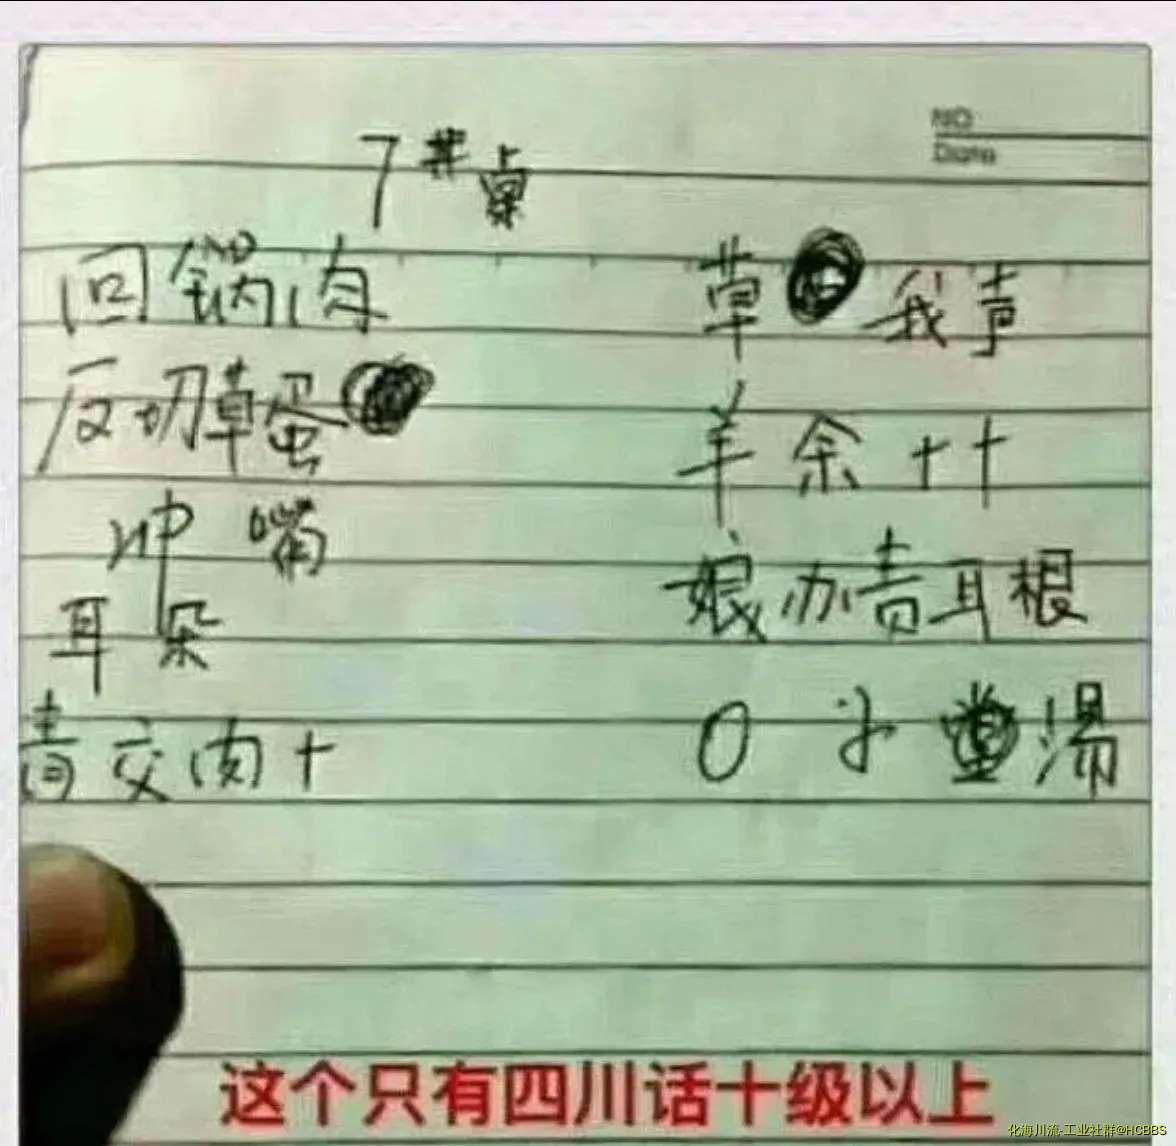 NO
Date
7 井桌
回锅肉
草 我声
反切草蛋
羊余十十
冲嘴
娘办青耳根
耳朵
0 汤
青交肉十
这个只有四川话十级以上
化海川流-工业社群@HCBBS